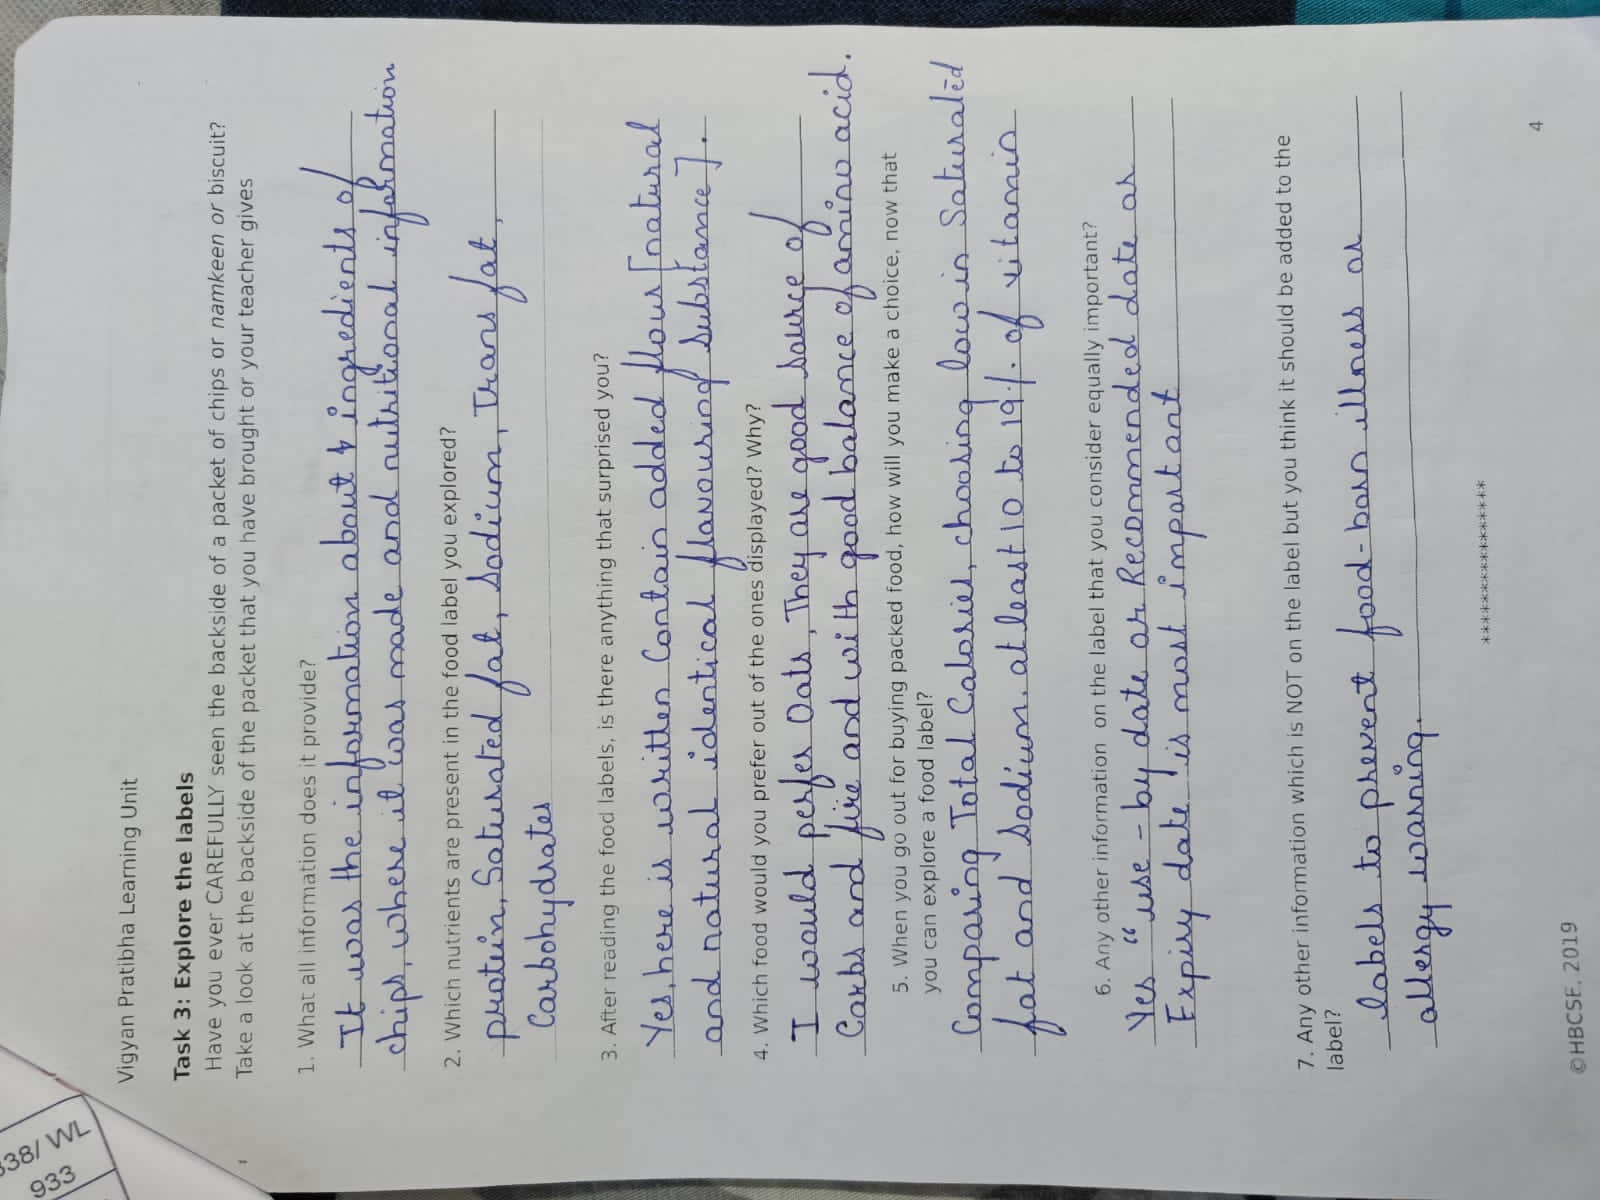 338/ WL
933
Vigyan Pratibha Learning Unit
Task 3: Explore the labels
Have you ever CAREFULLY seen the backside of a packet of chips or namkeen or biscuit?
Take a look at the backside of the packet that you have brought or your teacher gives
1. What all information does it provide?
It was the information about ingredients of
chips, where it was made and nutritional information
2. Which nutrients are present in the food label you explored?
protein, Saturated fat, Sodium, Trans fat,
Carbohydrates
3. After reading the food labels, is there anything that surprised you?
Yes, here is written Contain added flour [natural
and natural identical flavouring substance].
4. Which food would you prefer out of the ones displayed? Why?
I would perfer Oats, They are good source of
Carbs and fire and with good balance of amino acid.
5. When you go out for buying packed food, how will you make a choice, now that
you can explore a food label?
Comparing Total Calories, choosing low in Saturated
fat and sodium. at least 10 to 19%. of vitamin
6. Any other information on the label that you consider equally important?
Yes "use-by date or Recommended date or
Expiry date is most important
7. Any other information which is NOT on the label but you think it should be added to the
label?
labels to prevent food-born illness or
allergy warning.
**************
4
©HBCSE, 2019